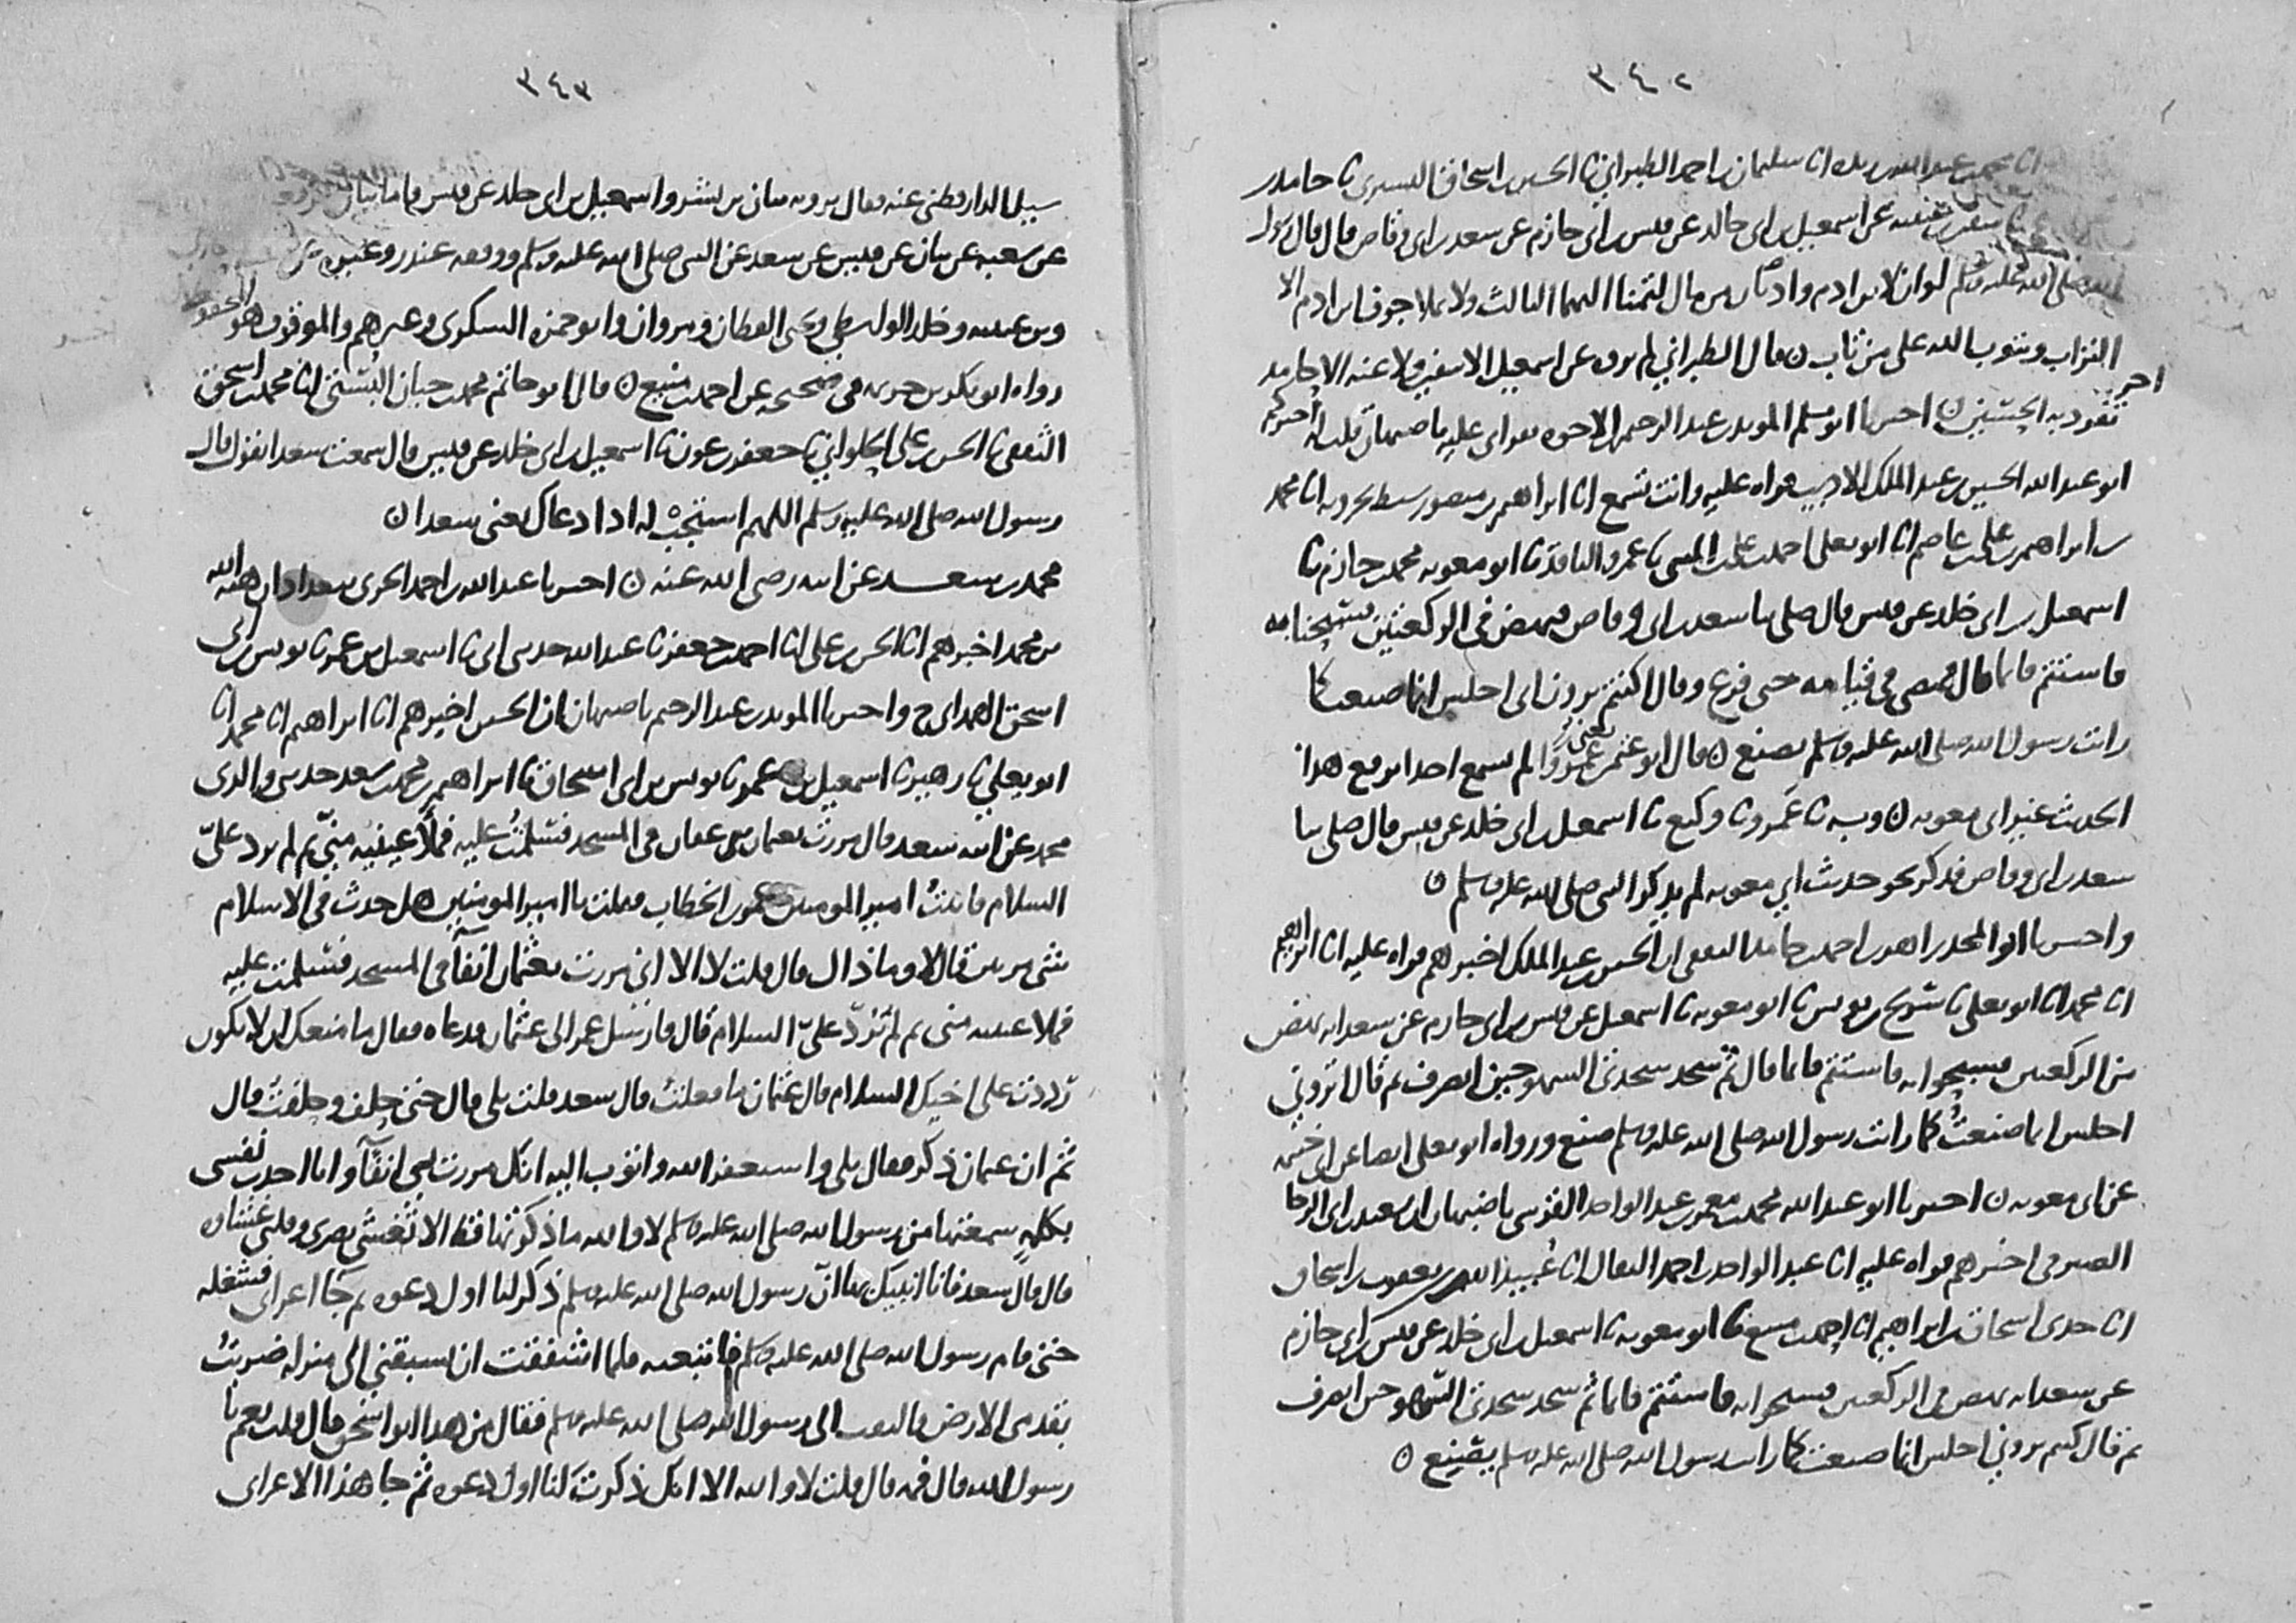 ٣٤٢
انا محمد بن عبد الله بن ريذه انا سليمان بن احمد الطبراني نا الحسين بن اسحاق التستري نا حامد بن
عن اسمعيل بن ابي خالد عن قيس بن ابي حازم عن سعد بن ابي وقاص قال قال رسول
الله صلى الله عليه وسلم لو ان لابن ادم واديان من مال لتمنا اليهما الثالث ولا يملا جوف ابن ادم الا
التراب ويتوب الله على من تاب ن قال الطبراني لم يرو عن اسمعيل الا سفين ولا عنه الا حامد
تفرد به الحسين ن اخبرنا ابو مسلم المويد بن عبد الرحيم بن الاخوه بقراتي عليه باصبهان قلت له اخبركم
ابو عبد الله الحسين بن عبد الملك الاديب قراه عليه وانت تسمع انا ابراهيم بن منصور سبط بحرويه انا محمد
بن ابراهيم بن علي بن عاصم انا ابو يعلى احمد بن علي بن المثنى نا عمرو الناقد نا ابو معويه محمد بن خازم نا
اسمعيل بن ابي خلد عن قيس قال صلى بنا سعد بن ابي وقاص فنهض في الركعتين فسبحنا به
فاستتم قايما قال فمضى في قيامه حتى فرغ وقال اكنتم ترون اني اجلس انما صنعت كما
رايت رسول الله صلى الله عليه وسلم يصنع ن قال ابو عثمن يعني عمرًوا لم نسمع احدا يرفع هذا
الحديث غير ابي معويه ن وبه نا عمرو نا وكيع نا اسمعيل بن ابي خلد عن قيس قال صلى بنا
سعد بن ابي وقاص فذكر نحو حديث ابي معويه لم يذكر النبي صلى الله عليه وسلم ن
واخبرنا ابو المجد زاهر بن احمد بن حامد الثقفي ان الحسين بن عبد الملك اخبرهم قراه عليه انا ابراهيم
انا محمد انا ابو يعلى نا سريج بن يونس نا ابو معويه نا اسمعيل عن قيس بن ابي حازم عن سعد انه نهض
من الركعتين فسبحوا به فاستتم قايما قال ثم سجد سجدتي السهو حين انصرف ثم قال اتروني
اجلس انما صنعتُ كما رايت رسول الله صلى الله عليه وسلم صنع ورواه ابو يعلى ايضا عن ابي خيثمه
عن ابي معويه ن اخبرنا ابو عبد الله محمد بن معمر بن عبد الواحد القرشي باصبهان ان سعيد بن ابي الرجا
الصيرفي اخبرهم قراه عليه انا عبد الواحد بن احمد البقال انا عُبيد الله بن يعقوب بن اسحاق
انا جدي اسحاق بن ابراهيم انا احمد بن منيع نا ابو معويه نا اسمعيل بن ابي خلد عن قيس بن ابي حازم
عن سعد انه نهض في الركعتين فسبحوا به فاستتم قايما ثم سجد سجدتي السهو حين انصرف
ثم قال كنتم تروني اجلس انما صنعت كما رايت رسول الله صلى الله عليه وسلم يصنع ن
٣٤٣
سيل الدارقطني عنه فقال يرويه بيان بن بشر واسمعيل بن ابي خلد عن قيس فاما بيان
عن شعبه عن بيان عن قيس عن سعد عن النبي صلى الله عليه وسلم ووقفه غندر وغيره عن
وبن عيينه وخلد الواسطي ويحيى القطان ومروان وابو حمزه السكري وغيرهم والموقوف هو المحفوظ
رواه ابو بكر بن خزيمه في صحيحه عن احمد بن منيع ن قال ابو حاتم محمد بن حبان البُستي انا محمد بن اسحق
الثقفي نا الحسن بن علي الحلواني نا جعفر بن عون نا اسمعيل بن ابي خلد عن قيس قال سمعت سعدا يقول قال
رسول الله صلى الله عليه وسلم اللهم استجب له اذا دعاك يعني سعدا ن
محمد بن سعد عن ابيه رضي الله عنه ن اخبرنا عبد الله بن احمد الحربي ببغداد ان هبة الله
بن محمد اخبرهم انا الحسن بن علي انا احمد بن جعفر نا عبد الله حدثني ابي نا اسمعيل بن عمر نا يونس بن ابي
اسحق الهمداني ح واخبرنا المويد بن عبد الرحيم باصبهان ان الحسين اخبرهم انا ابراهيم انا محمد انا
ابو يعلى نا زهير نا اسمعيل بن عمر نا يونس بن ابي اسحاق نا ابراهيم بن محمد بن سعد حدثني والدي
محمد عن ابيه سعد قال مررت بعثمان بن عفان في المسجد فسلمتُ عليه فملأ عينيه منّي ثم لم يرد عليّ
السلام فاتيتُ امير المومنين عمر بن الخطاب فقلت يا امير المومنين هل حدث في الاسلام
شي مرتين قال لا وما ذاك قال قلت لا الا اني مررت بعثمان انفًا في المسجد فسلمت عليه
فملا عينيه مني ثم لم يَرُدّ عليّ السلام قال فارسل عمر الى عثمان فدعاه فقال ما منعك ان لا تكون
رددت على اخيك السلام قال عثمان ما فعلتُ قال سعد قلت بلى قال حتى حلف وحلفتُ قال
ثم ان عثمان ذكر فقال بلى واستغفر الله واتوب اليه انك مررت بي انفًا وانا احدث نفسي
بكلمه سمعتها من رسول الله صلى الله عليه وسلم لا والله ما ذكرتها قط الا تغشى بصري وقلبي غشاوه
قال قال سعد فانا انبيك بها ان رسول الله صلى الله عليه وسلم ذكر لنا اول دعوه ثم جا اعرابي فشغله
حتى قام رسول الله صلى الله عليه وسلم فاتبعته فلما اشفقت ان يسبقني الى منزله ضربتُ
بقدمي الارض فالتفت الى رسول الله صلى الله عليه وسلم فقال من هذا ابو اسحق قال قلت نعم يا
رسول الله قال فمه قال قلت لا والله الا انك ذكرت لنا اول دعوه ثم جا هذا الاعرابي